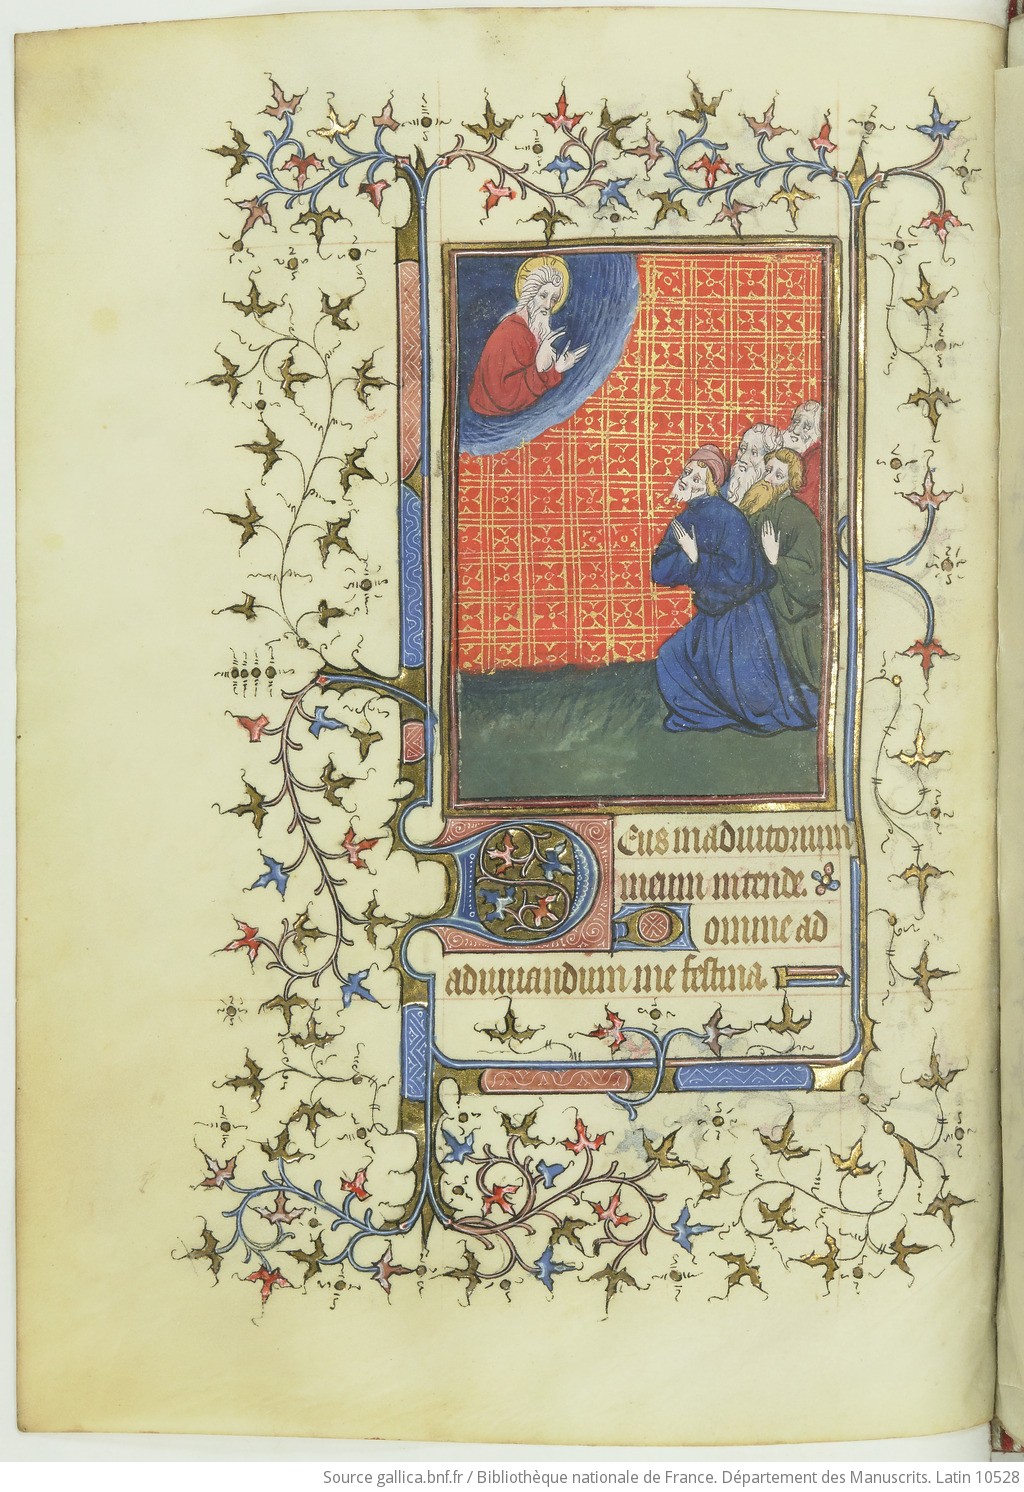 Deus in adiutorium
meum intende.
Domine ad
adiuuandum me festina.
Source gallica.bnf.fr / Bibliothèque nationale de France. Département des Manuscrits. Latin 10528